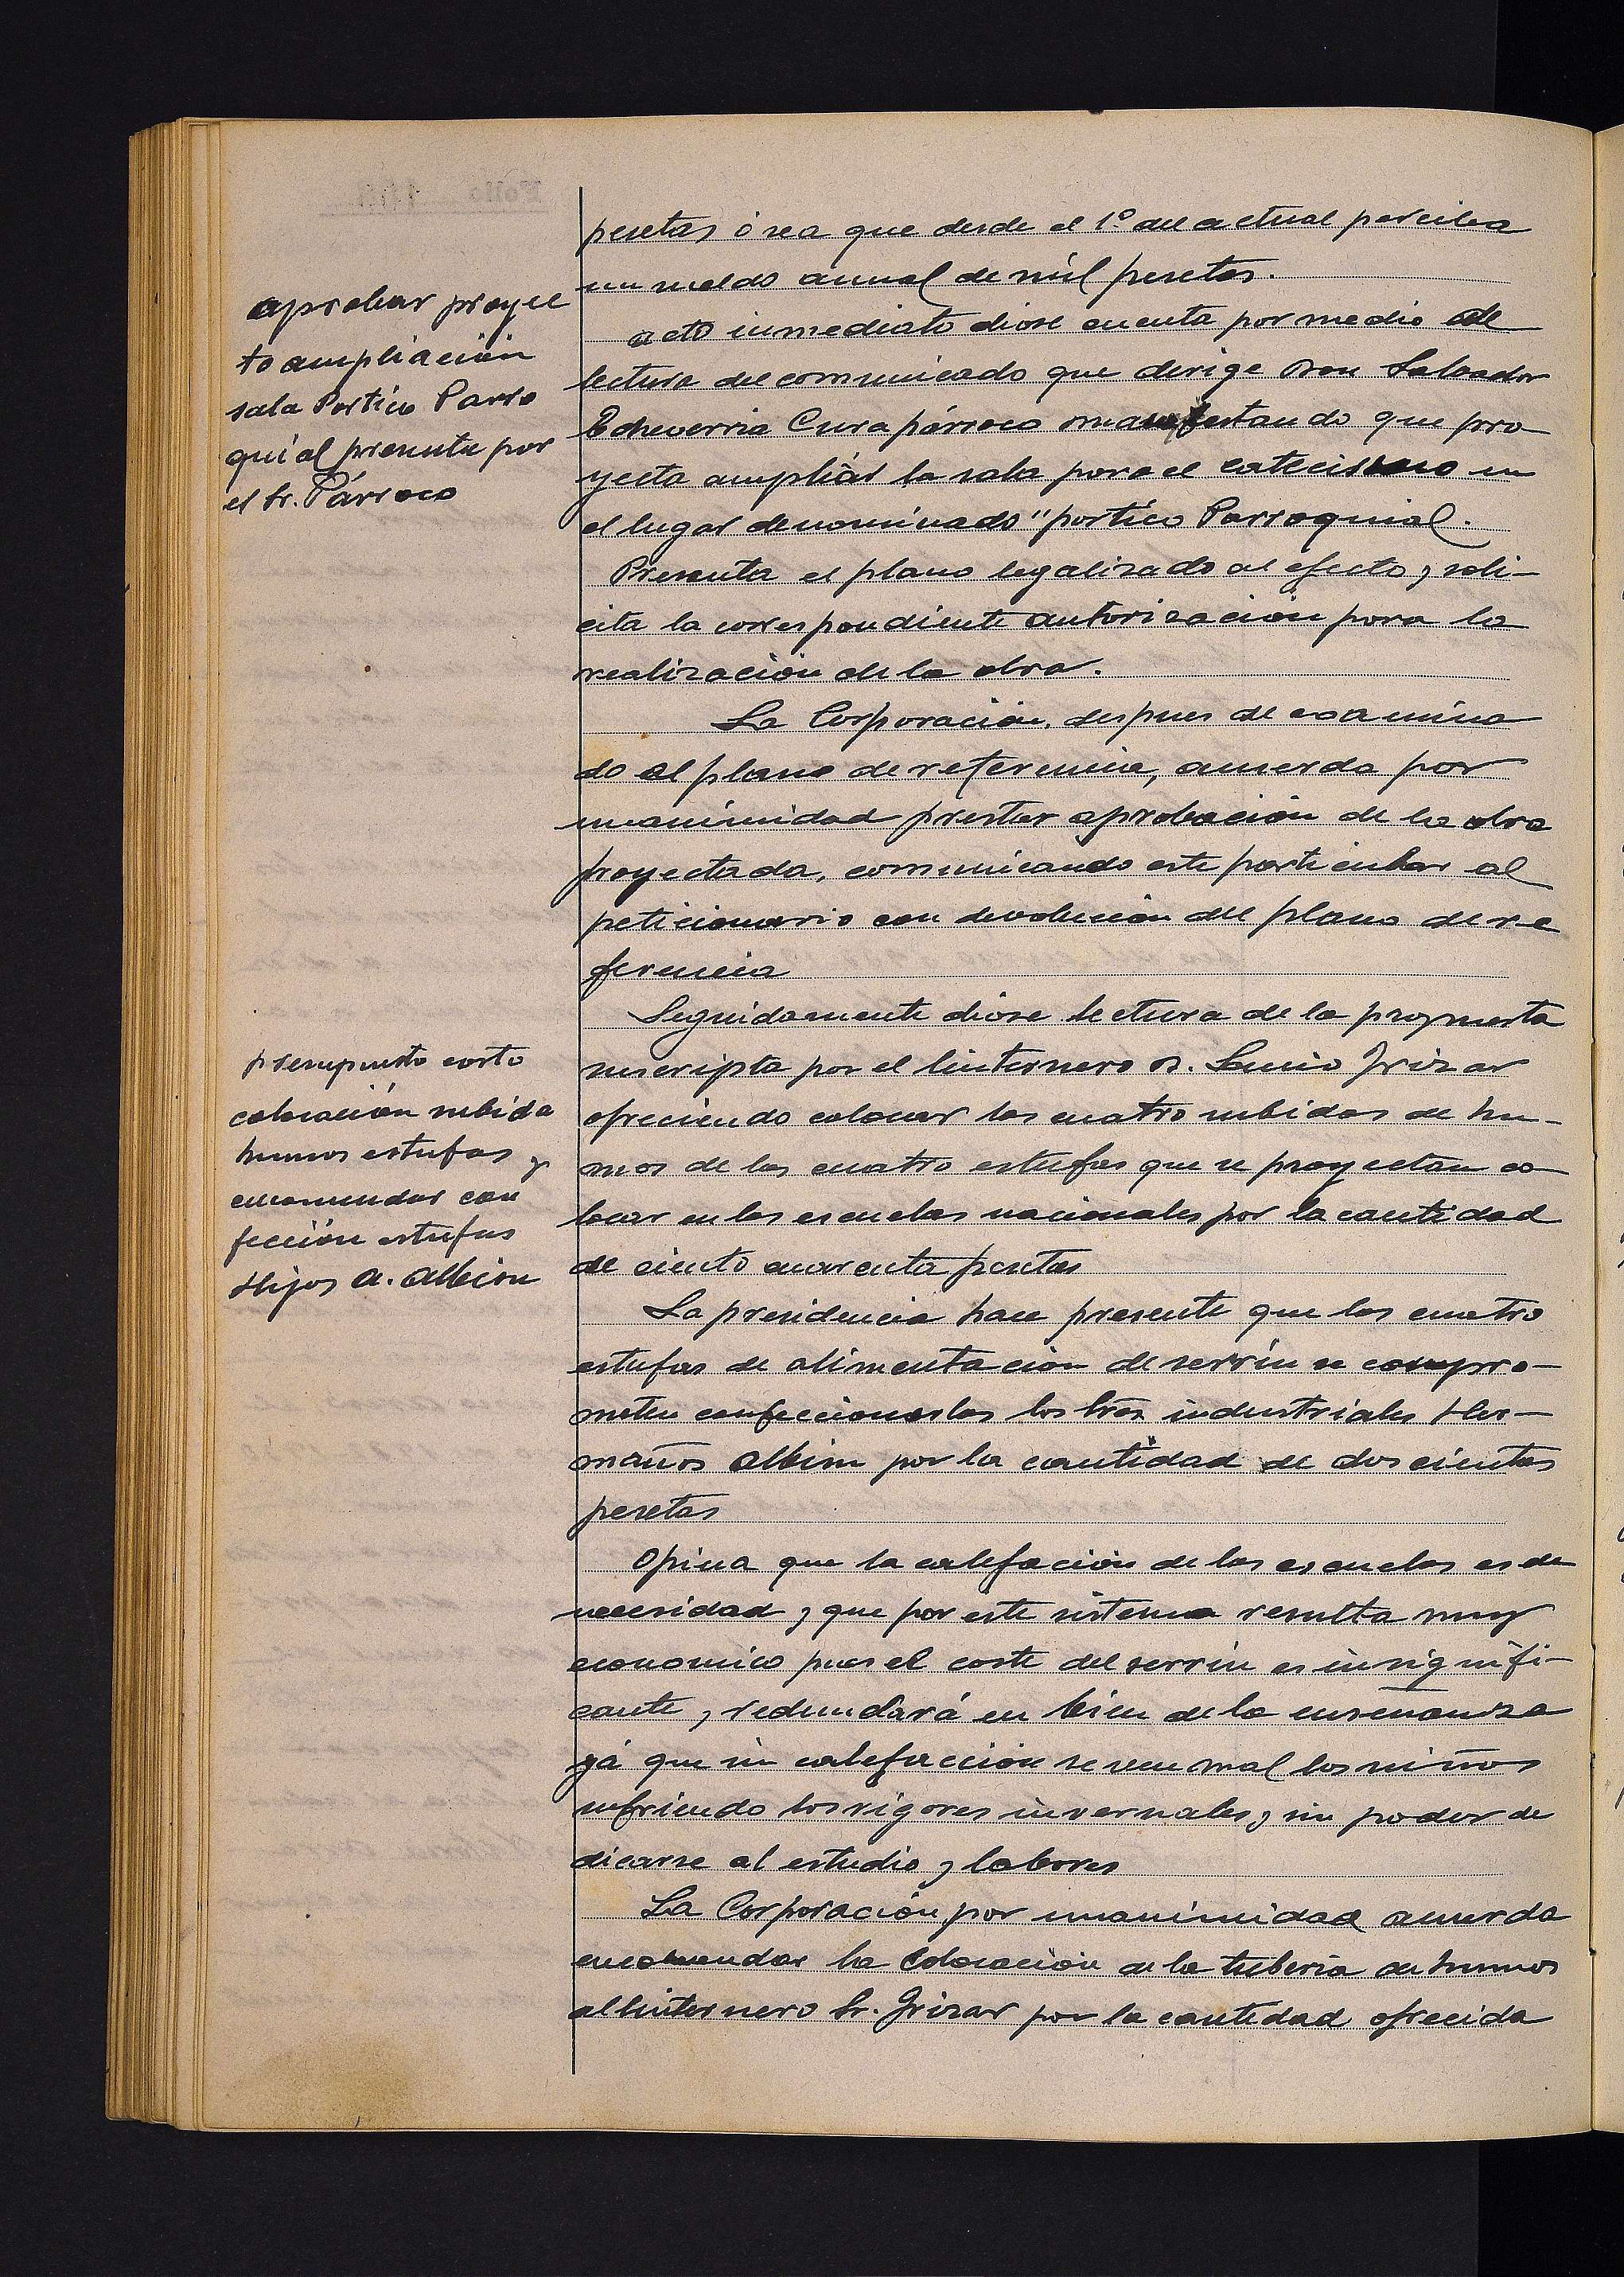 pesetas ó sea que desde el 1º del actual perciba
un sueldo anual de mil pesetas.
aprobar proyec
to ampliación
sala Portico Parro
quial presenta por
el Sr. Párroco
acto inmediato diose cuenta por medio de
lectura del comunicado que dirige Don Salvador
Echeverria Cura párroco manifestando que pro-
yecta ampliar la sala para el catecismo en
el lugar denominado "portico Parroquial.
Presenta el plano legalizado al efecto y soli-
cita la correspondiente autorización para la
realización de la obra.
La Corporación, despues de examina
do el plano de referencia, acuerda por
unanimidad prestar aprobación de la obra
proyectada, comunicando este particular al
peticionario con devolución del plano de re
ferencia
presupuesto costo
colocación subida
humos estufas y
encomendar con
fección estufas
Hijos A. Albion
Seguidamente diose lectura de la propuesta
suscripta por el linternero D. Lucio Irizar
ofreciendo colocar las cuatro subidas de hu-
mos de las cuatro estufas que se proyectan co
locar en las escuelas nacionales por la cantidad
de ciento cuarenta pesetas
La presidencia hace presente que las cuatro
estufas de alimentación de serrin se compro-
meten confeccionarlas los Sres industriales Her-
manos Albion por la cantidad de dos cientas
pesetas
Opina que la calefación de las escuelas es de
necesidad y que por este sistema resulta muy
economico pues el coste del serrin es insignifi-
cante y redundará en bien de la enseñanza
yá que sin calefacción se ven mal los niños
sufriendo los rigores invernales y sin poder de
dicarse al estudio y labores
La Corporación por unanimidad acuerda
encomendar la colocación de la tuberia de humos
al linternero Sr. Irizar por la cantidad ofrecida